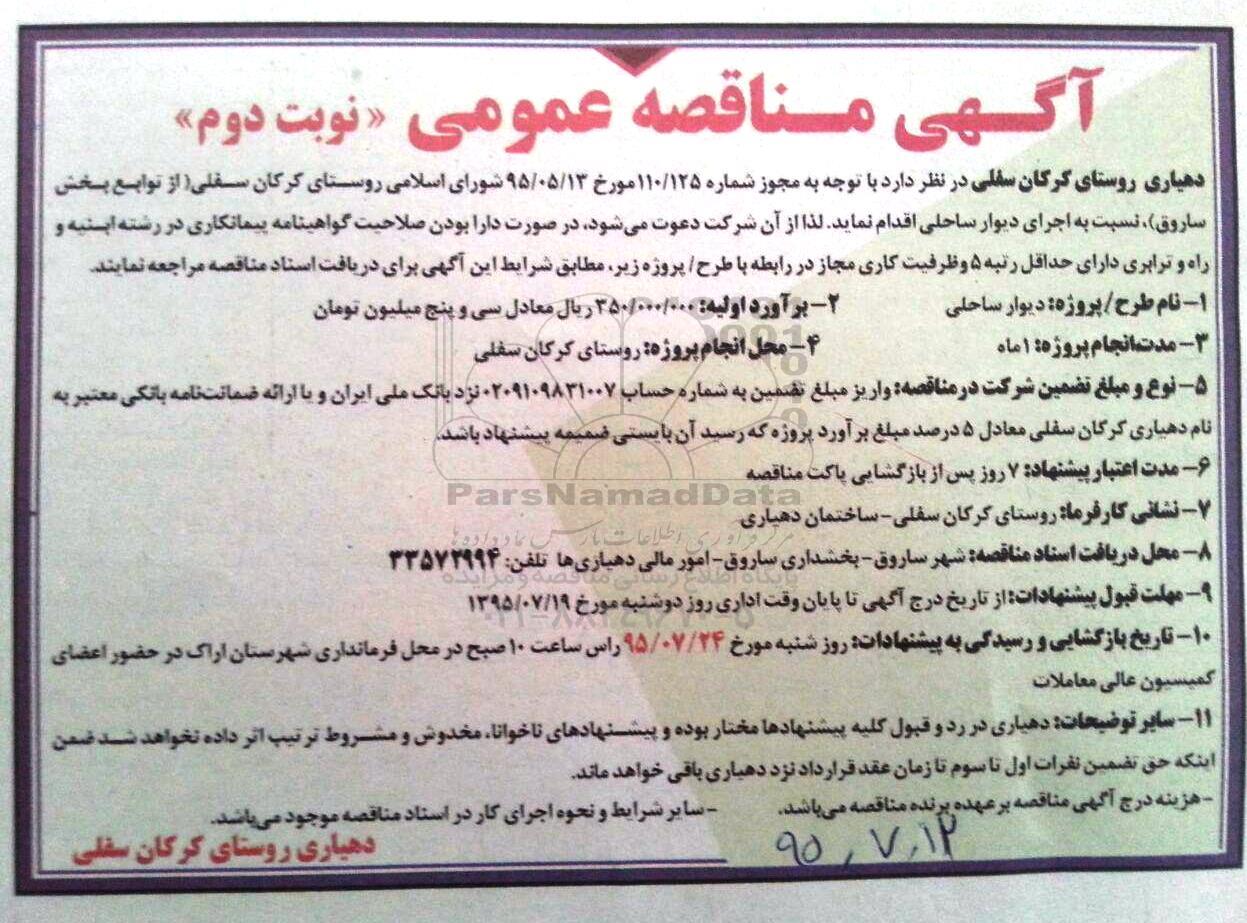 آگهی مناقصه عمومی «نوبت دوم»
دهیاری روستای کرکان سفلی در نظر دارد با توجه به مجوز شماره ۱۱۰/۱۲۵مورخ ۹۵/۰۵/۱۳ شورای اسلامی روستای کرکان سفلی( از توابع بخش
ساروق)، نسبت به اجرای دیوار ساحلی اقدام نماید. لذا از آن شرکت دعوت می‌شود، در صورت دارا بودن صلاحیت گواهینامه پیمانکاری در رشته ابنیه و
راه و ترابری دارای حداقل رتبه ۵ وظرفیت کاری مجاز در رابطه با طرح/ پروژه زیر، مطابق شرایط این آگهی برای دریافت اسناد مناقصه مراجعه نمایند.
۱- نام طرح/ پروژه: دیوار ساحلی ۲- برآورد اولیه: ۳۵۰/۰۰۰/۰۰۰ ریال معادل سی و پنج میلیون تومان
۳- مدت‌انجام پروژه: ۱ماه ۴- محل انجام پروژه: روستای کرکان سفلی
۵- نوع و مبلغ تضمین شرکت در مناقصه: واریز مبلغ تضمین به شماره حساب ۰۲۰۹۱۰۹۸۳۱۰۰۷ نزد بانک ملی ایران و یا ارائه ضمانت‌نامه بانکی معتبر به
نام دهیاری کرکان سفلی معادل ۵ درصد مبلغ برآورد پروژه که رسید آن بایستی ضمیمه پیشنهاد باشد.
۶- مدت اعتبار پیشنهاد: ۷ روز پس از بازگشایی پاکت مناقصه
ParsNamadData
۷- نشانی کارفرما: روستای کرکان سفلی- ساختمان دهیاری
مرکز فرآوری اطلاعات پارس نماد داده ها
۸- محل دریافت اسناد مناقصه: شهر ساروق- بخشداری ساروق- امور مالی دهیاری‌ها تلفن: ۳۳۵۷۲۹۹۴
پایگاه اطلاع رسانی مناقصه و مزایده
۹- مهلت قبول پیشنهادات: از تاریخ درج آگهی تا پایان وقت اداری روز دوشنبه مورخ ۱۳۹۵/۰۷/۱۹
۱۰- تاریخ بازگشایی و رسیدگی به پیشنهادات: روز شنبه مورخ ۹۵/۰۷/۲۴ راس ساعت ۱۰ صبح در محل فرمانداری شهرستان اراک در حضور اعضای
کمیسیون عالی معاملات
۱۱- سایر توضیحات: دهیاری در رد و قبول کلیه پیشنهادها مختار بوده و پیشنهادهای ناخوانا، مخدوش و مشروط ترتیب اثر داده نخواهد شد ضمن
اینکه حق تضمین نفرات اول تا سوم تا زمان عقد قرارداد نزد دهیاری باقی خواهد ماند.
-هزینه درج آگهی مناقصه بر عهده برنده مناقصه می‌باشد. -سایر شرایط و نحوه اجرای کار در اسناد مناقصه موجود می‌باشد.
دهیاری روستای کرکان سفلی
۹۵,۷,۱۲